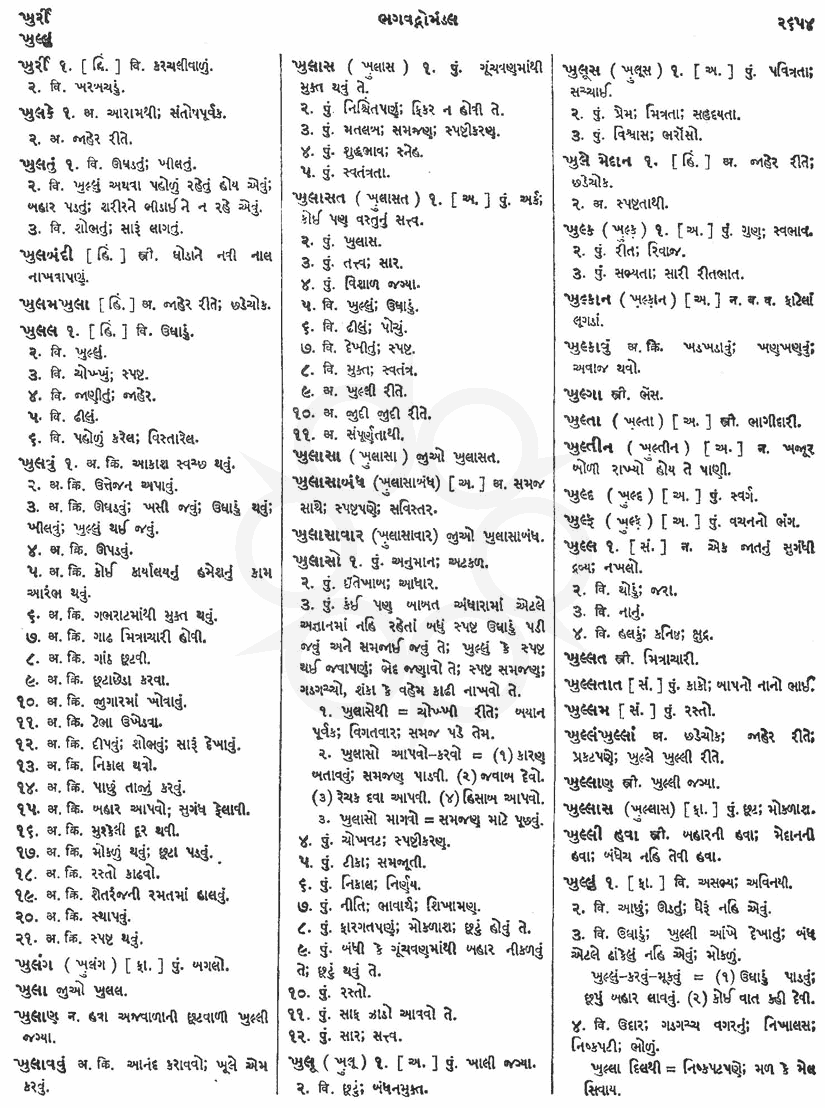 ખુર્રી
ખુલ્લું
ભગવદ્ગોમંડલ
૨૬૫૪
ખુર્રી ૧. [ હિં. ] વિ. કરચલીવાળું.
૨. વિ. ખરબચડું.
ખુલકે ૧. અ. આરામથી; સંતોષપૂર્વક.
૨. અ. જાહેર રીતે.
ખુલતું ૧. વિ. ઊઘડતું; ખીલતું.
૨. વિ. ખુલ્લું અથવા પહોળું રહેતું હોય એવું;
બહાર પડતું; શરીરને ભીડાઈને ન રહે એવું.
૩. વિ. શોભતું; સારૂં લાગતું.
ખુલબંદી [ હિં. ] સ્ત્રી. ઘોડાને નવી નાલ
નાખવાપણું.
ખુલમખુલા [ હિં. ] અ. જાહેર રીતે; છડેચોક.
ખુલલ ૧. [ હિં. ] વિ. ઉઘાડું.
૨. વિ. ખુલ્લું.
૩. વિ. ચોખ્ખું; સ્પષ્ટ.
૪. વિ. જાણીતું; જાહેર.
૫. વિ. ઢીલું.
૬. વિ. પહોળું કરેલ; વિસ્તારેલ.
ખુલવું ૧. અ. ક્રિ. આકાશ સ્વચ્છ થવું.
૨. અ. ક્રિ. ઉત્તેજન અપાવું.
૩. અ. ક્રિ. ઊઘડવું; ખસી જવું; ઉઘાડું થવું;
ખીલવું; ખુલ્લું થઈ જવું.
૪. અ. ક્રિ. ઊપડવું.
૫. અ. ક્રિ. કોઈ કાર્યાલયનું હમેશનું કામ
આરંભ થવું.
૬. અ. ક્રિ. ગભરાટમાંથી મુક્ત થવું.
૭. અ. ક્રિ. ગાઢ મિત્રાચારી હોવી.
૮. અ. ક્રિ. ગાંઠ છૂટવી.
૯. અ. ક્રિ. છૂટાછેડા કરવા.
૧૦. અ. ક્રિ. જુગારમાં ખોવાવું.
૧૧. અ. ક્રિ. ટેભા ઉખેડવા.
૧૨. અ. ક્રિ. દીપવું; શોભવું; સારૂં દેખાવું.
૧૩. અ. ક્રિ. નિકાલ થવો.
૧૪. અ. ક્રિ. પાછું તાજું કરવું.
૧૫. અ. ક્રિ. બહાર આપવો; સુગંધ ફેલાવી.
૧૬. અ. ક્રિ. મુશ્કેલી દૂર થવી.
૧૭. અ. ક્રિ. મોકળું થવું; છૂટા પડવું.
૧૮. અ. ક્રિ. રસ્તો કાઢવો.
૧૯. અ. ક્રિ. શેતરંજની રમતમાં હાલવું.
૨૦. અ. ક્રિ. સ્થાપવું.
૨૧. અ. ક્રિ. સ્પષ્ટ થવું.
ખુલંગ ( ખુલંગ ) [ ફા. ] પું. બગલો.
ખુલા જુઓ ખુલલ.
ખુલાણ ન. હવા અજવાળાની છૂટવાળી ખુલ્લી
જગ્યા.
ખુલાવવું અ. ક્રિ. આનંદ કરાવવો; ખૂલે એમ
કરવું.
ખુલાસ ( ખુલાસ ) ૧. પું. ગૂંચવણમાંથી
મુક્ત થવું તે.
૨. પું. નિશ્ચિતપણું; ફિકર ન હોવી તે.
૩. પું. મતલબ; સમજણ; સ્પષ્ટીકરણ.
૪. પું. શુદ્ધભાવ; સ્નેહ.
૫. પું. સ્વતંત્રતા.
ખુલાસત ( ખુલાસત ) ૧. [ અ. ] પું. અર્ક;
કોઈ પણ વસ્તુનું સત્ત્વ.
૨. પું. ખુલાસ.
૩. પું. તત્ત્વ; સાર.
૪. પું. વિશાળ જગ્યા.
૫. વિ. ખુલ્લું; ઉઘાડું.
૬. વિ. ઢીલું; પોચું.
૭. વિ. દેખીતું; સ્પષ્ટ.
૮. વિ. મુક્ત; સ્વતંત્ર.
૯. અ. ખુલ્લી રીતે.
૧૦. અ. જુદી જુદી રીતે.
૧૧. અ. સંપૂર્ણતાથી.
ખુલાસા ( ખુલાસા ) જુઓ ખુલાસત.
ખુલાસાબંધ (ખુલાસાબંધ) [ અ. ] અ. સમજ
સાથે; સ્પષ્ટપણે; સવિસ્તર.
ખુલાસાવાર (ખુલાસાવાર) જુઓ ખુલાસાબંધ.
ખુલાસો ૧. પું. અનુમાન; અટકળ.
૨. પું. ઇંતેખાબ; આધાર.
૩. પું. કંઈ પણ બાબત અંધારામાં એટલે
અજ્ઞાનમાં નહિ રહેતાં બધું સ્પષ્ટ ઉઘાડું પડી
જવું અને સમજાઈ જવું તે; ખુલ્લું કે સ્પષ્ટ
થઈ જવાપણું; ભેદ જણાવો તે; સ્પષ્ટ સમજણ;
ગડગચ્ચો, શંકા કે વહેમ કાઢી નાખવો તે.
૧. ખુલાસેથી = ચોખ્ખી રીતે; બયાન
પૂર્વક; વિગતવાર; સમજ પડે તેમ.
૨. ખુલાસો આપવો-કરવો = (૧) કારણ
બતાવવું; સમજણ પાડવી. (૨) જવાબ દેવો.
(૩) રેચક દવા આપવી. (૪) હિસાબ આપવો.
૩. ખુલાસો માગવો = સમજણ માટે પૂછવું.
૪. પું. ચોખવટ; સ્પષ્ટીકરણ.
૫. પું. ટીકા; સમજૂતી.
૬. પું. નિકાલ; નિર્ણય.
૭. પું. નીતિ; ભાવાર્થ; શિખામણ.
૮. પું. ફારગતપણું; મોકળાશ; છૂટું હોવું તે.
૯. પું. બંધી કે ગૂંચવણમાંથી બહાર નીકળવું
તે; છૂટું થવું તે.
૧૦. પું. રસ્તો.
૧૧. પું. સાફ ઝાડો આવવો તે.
૧૨. પું. સાર; સત્ત્વ.
ખુલૂ ( ખુલૂ ) ૧. [ અ. ] પું. ખાલી જગ્યા.
૨. વિ. છૂટું; બંધનમુક્ત.
ખુલૂસ ( ખુલૂસ ) ૧. [ અ. ] પું. પવિત્રતા;
સચ્ચાઈ.
૨. પું. પ્રેમ; મિત્રતા; સહૃદયતા.
૩. પું. વિશ્વાસ; ભરોંસો.
ખુલે મેદાન ૧. [ હિં. ] અ. જાહેર રીતે;
છડેચોક.
૨. અ. સ્પષ્ટતાથી.
ખુલ્ક ( ખુલ્ક ) ૧. [ અ. ] પું. ગુણ; સ્વભાવ.
૨. પું. રીત; રિવાજ.
૩. પું. સભ્યતા; સારી રીતભાત.
ખુલ્કાન ( ખુલ્કાન ) [ અ. ] ન. બ. વ. ફાટેલાં
લૂગડાં.
ખુલ્કાવું અ. ક્રિ. ખડખડાવું; ખણુખણવું;
અવાજ થવો.
ખુલ્ગા સ્ત્રી. ભેંસ.
ખુલ્તા ( ખુલ્તા ) [ અ. ] સ્ત્રી. ભાગીદારી.
ખુલ્તીન ( ખુલ્તીન ) [ અ. ] ન. ખજૂર
બોળી રાખ્યો હોય તે પાણી.
ખુલ્દ ( ખુલ્દ ) [ અ. ] પું. સ્વર્ગ.
ખુલ્ફ ( ખુલ્ફ ) [ અ. ] પું. વચનનો ભંગ.
ખુલ્લ ૧. [ સં. ] ન. એક જાતનું સુગંધી
દ્રવ્ય; નખલો.
૨. વિ. થોડું; જરા.
૩. વિ. નાનું.
૪. વિ. હલકું; કનિષ્ઠ; ક્ષુદ્ર.
ખુલ્લત સ્ત્રી. મિત્રાચારી.
ખુલ્લતાત [ સં. ] પું. કાકો; બાપનો નાનો ભાઈ.
ખુલ્લમ [ સં. ] પું. રસ્તો.
ખુલ્લંખુલ્લાં અ. છડેચોક; જાહેર રીતે;
પ્રકટપણે; ખુલ્લે ખુલ્લી રીતે.
ખુલ્લાણ સ્ત્રી. ખુલ્લી જગ્યા.
ખુલ્લાસ (ખુલ્લાસ) [ ફા. ] પું. છૂટ; મોકળાશ.
ખુલ્લી હવા સ્ત્રી. બહારની હવા; મેદાનની
હવા; બંધીચ નહિ તેવી હવા.
ખુલ્લું ૧. [ ફા. ] વિ. અસભ્ય; અવિનયી.
૨. વિ. આછું; ઊડતું; ઘેરૂં નહિ એવું.
૩. વિ. ઉઘાડું; ખુલ્લી આંખે દેખાતું; બંધ
એટલે ઢાંકેલું નહિ એવું; મોકળું.
ખુલ્લું-કરવું-મૂકવું = (૧) ઉઘાડું પાડવું;
છૂપું બહાર લાવવું. (૨) કોઈ વાત કહી દેવી.
૪. વિ. ઉદાર; ગડગચ્ચ વગરનું; નિખાલસ;
નિષ્કપટી; ભોળું.
ખુલ્લા દિલથી = નિષ્કપટપણે; મળ કે મેલ
સિવાય.